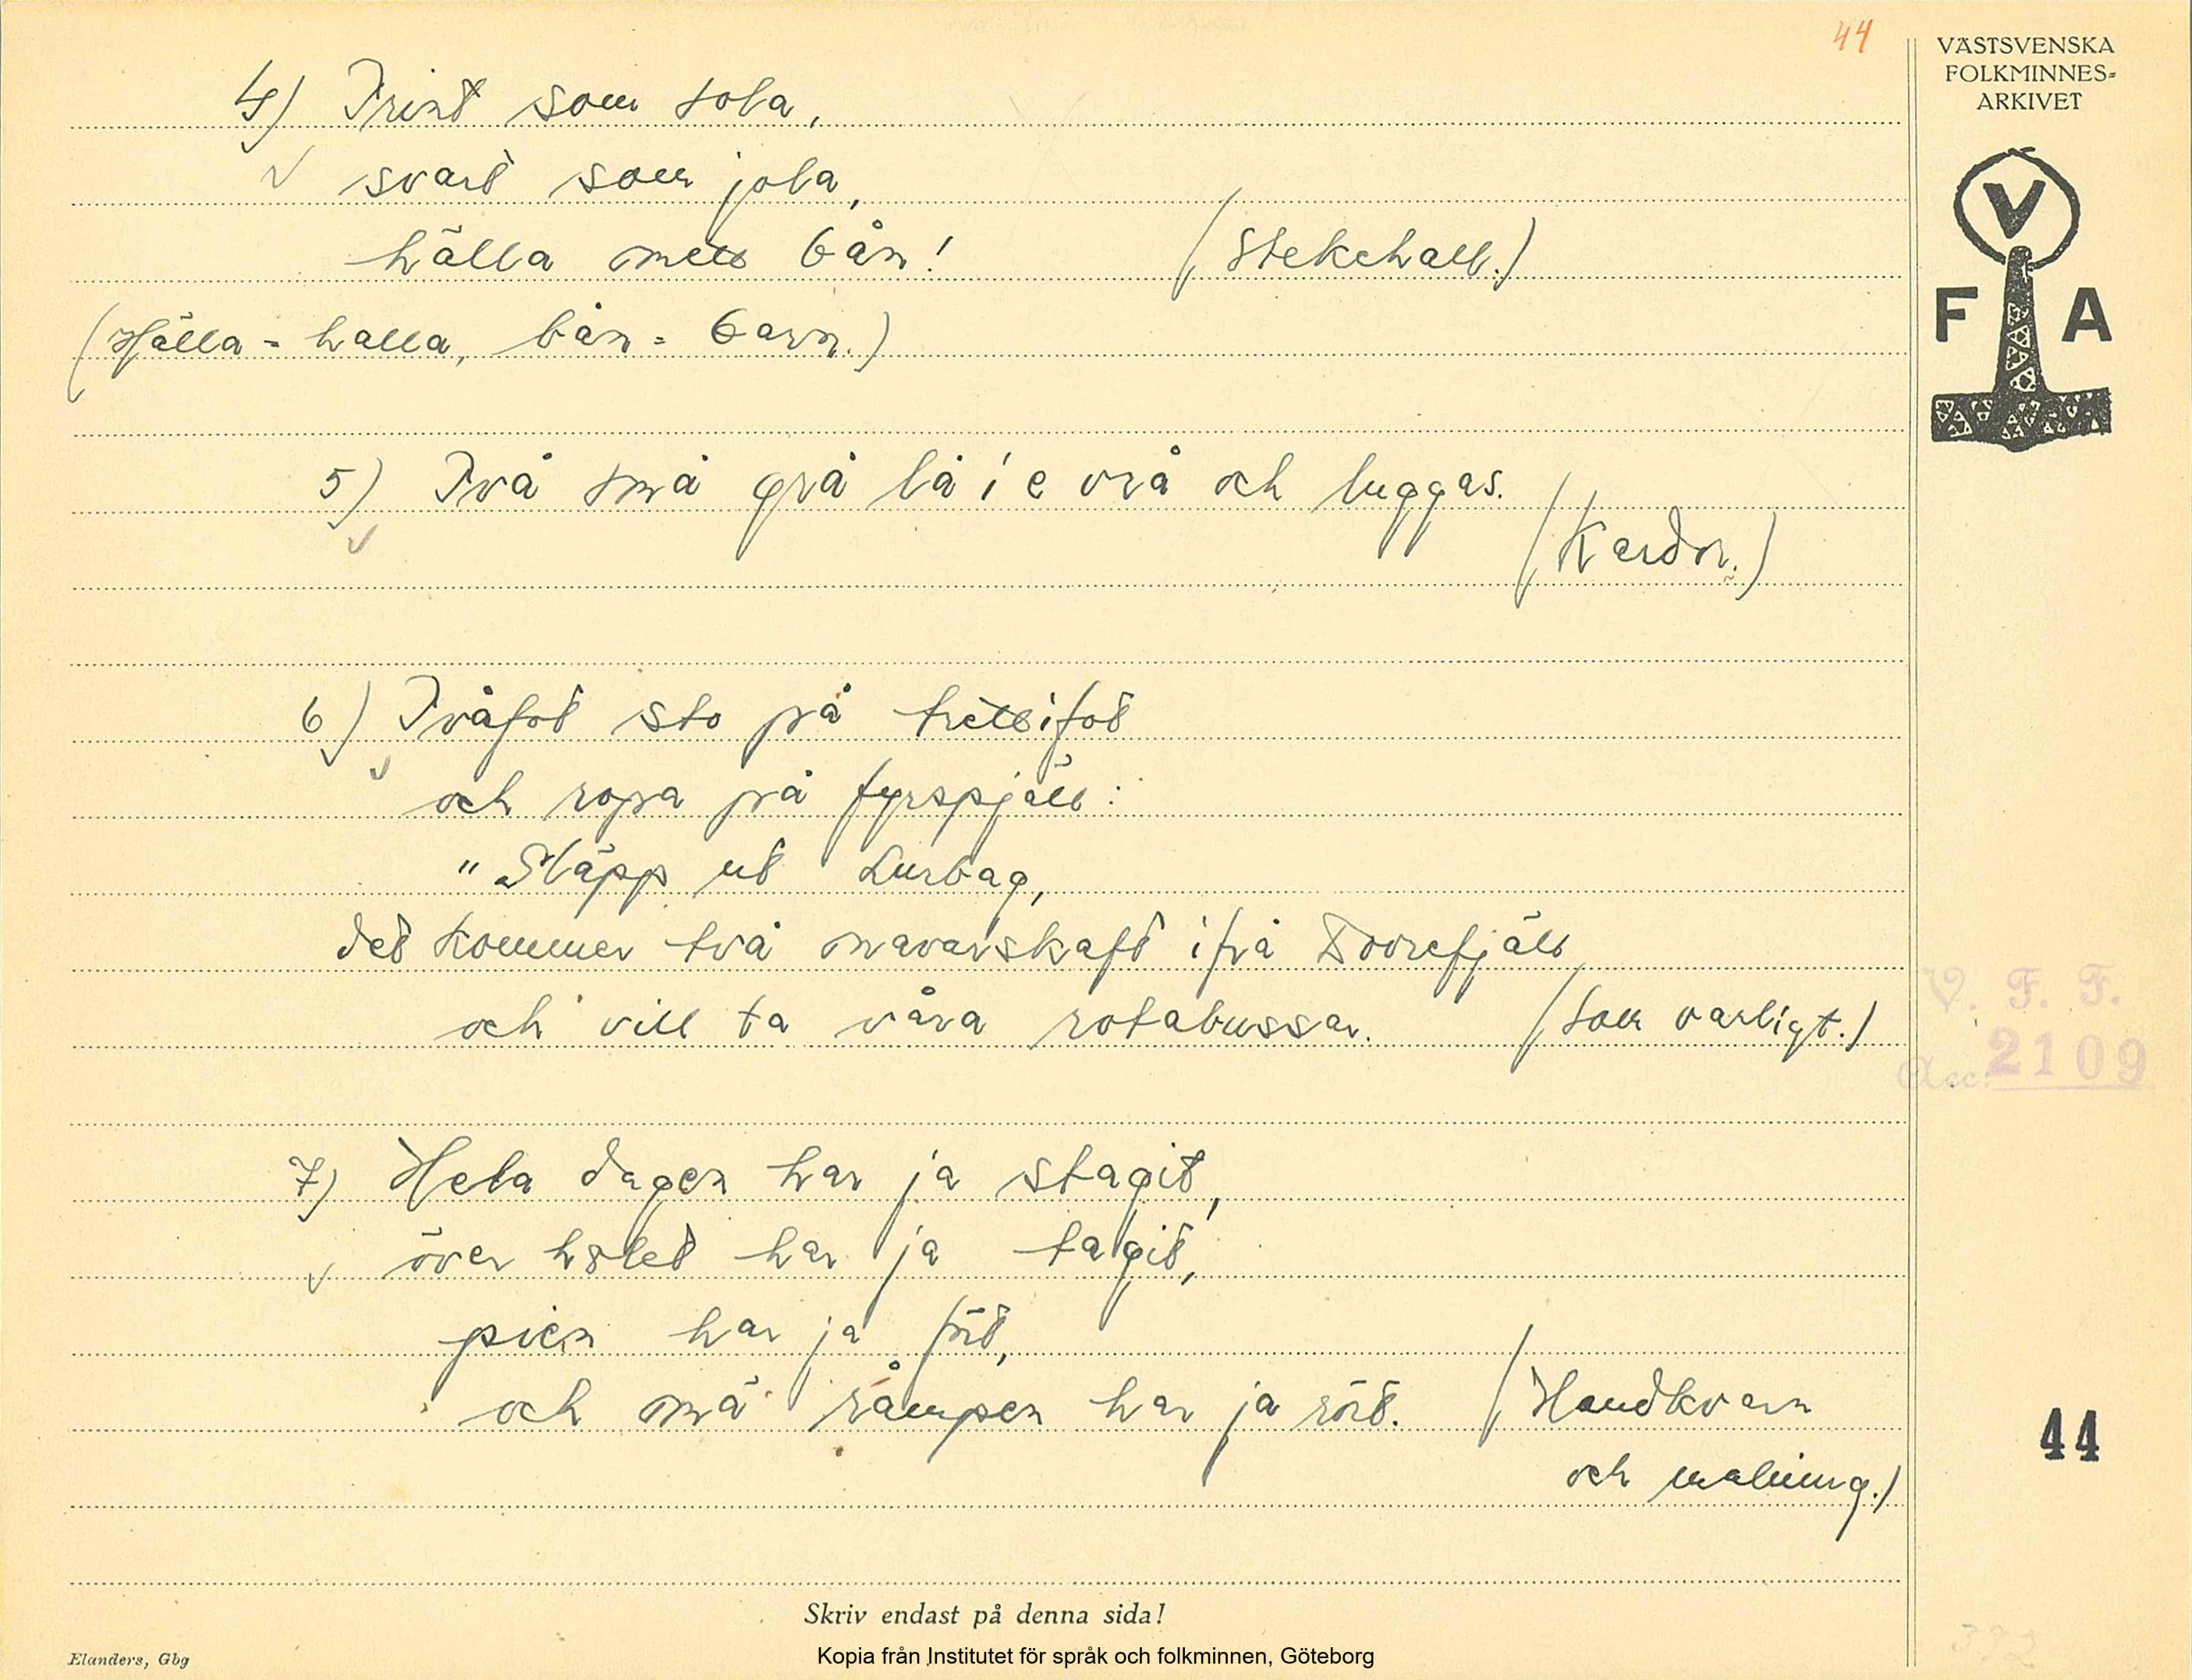 44
VÄSTSVENSKA
FOLKMINNES=
ARKIVET
V
F A
4) Trint som sola,
svart som jola,
hälla mett bån! (Stekehall.)
(Hälla = halla, bån = barn.)
5) Två små grå lå i e vrå och luggas.
(Kardor.)
6) Tvåfot sto på trettifot
och ropa på fyrspjäll:
"Släpp ut Lurbag,
det kommer två navarskaft ifrå Dovrefjäll
och vill ta våra rotabussar. (Som vanligt.)
V. F. F.
Acc. 2109
7) Hela dagen har ja stagit,
över hålet har ja tagit,
pien har ja fört,
och mä råmpen har ja rört. (Handkvarn
och malning.)
44
Skriv endast på denna sida!
Elanders, Gbg
Kopia från Institutet för språk och folkminnen, Göteborg